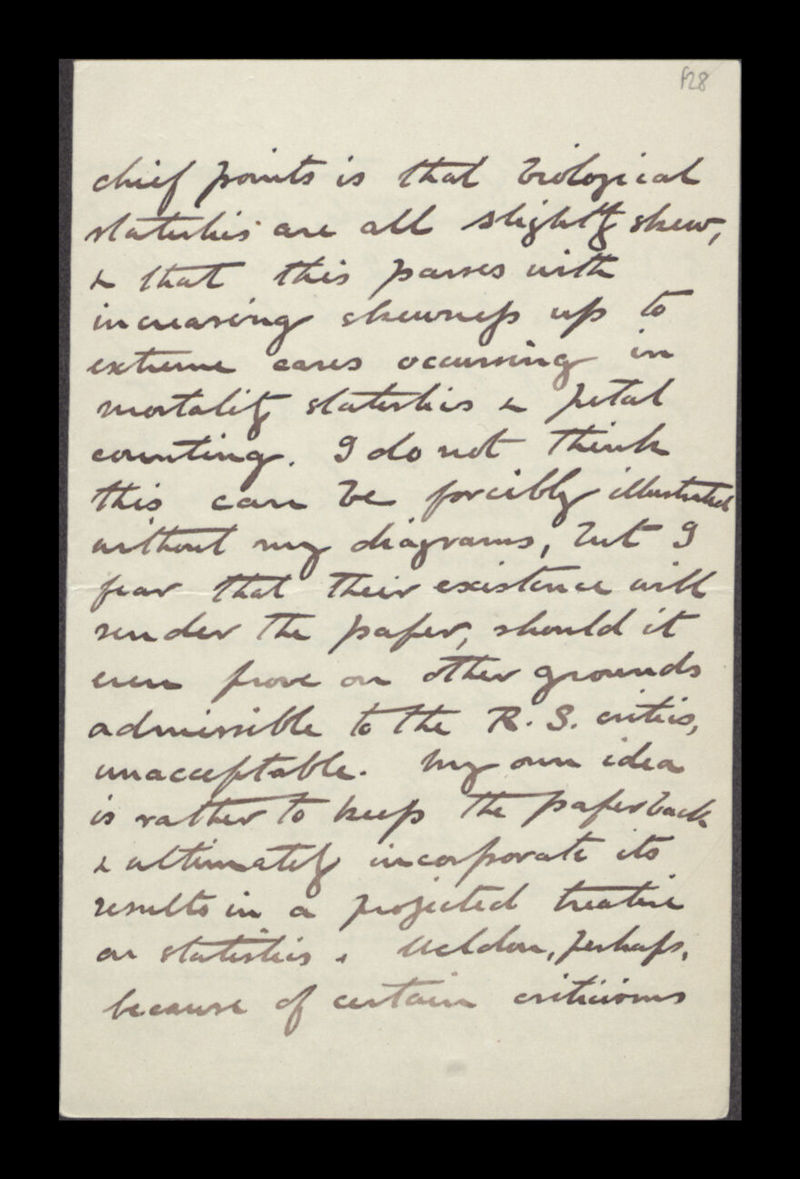 f28
chief points is that biological
statistics are all slightly skew,
& that this passes with
increasing skewness up to
extreme cases occurring in
mortality statistics & petal
counting. I do not think
this can be forcibly illustrated
without my diagrams, but I
fear that their existence will
render the paper, should it
even prove on other grounds
admissible to the R. S. critics,
unacceptable. My own idea
is rather to keep the paper back
& ultimately incorporate its
results in a projected treatise
on statistics. Weldon, perhaps,
because of certain criticisms